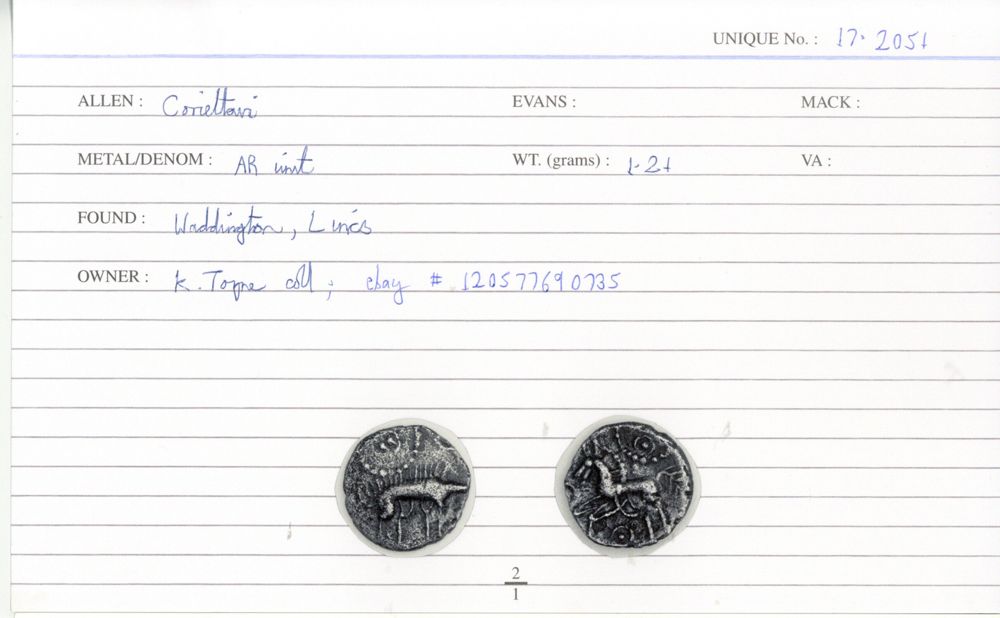 UNIQUE No. : 17. 2051
ALLEN : Corieltavi EVANS : MACK :
METAL/DENOM : AR unit WT. (grams) : 1.21 VA :
FOUND : Waddington, Lincs
OWNER : K. Toyne coll ; ebay # 120577690735
2
1